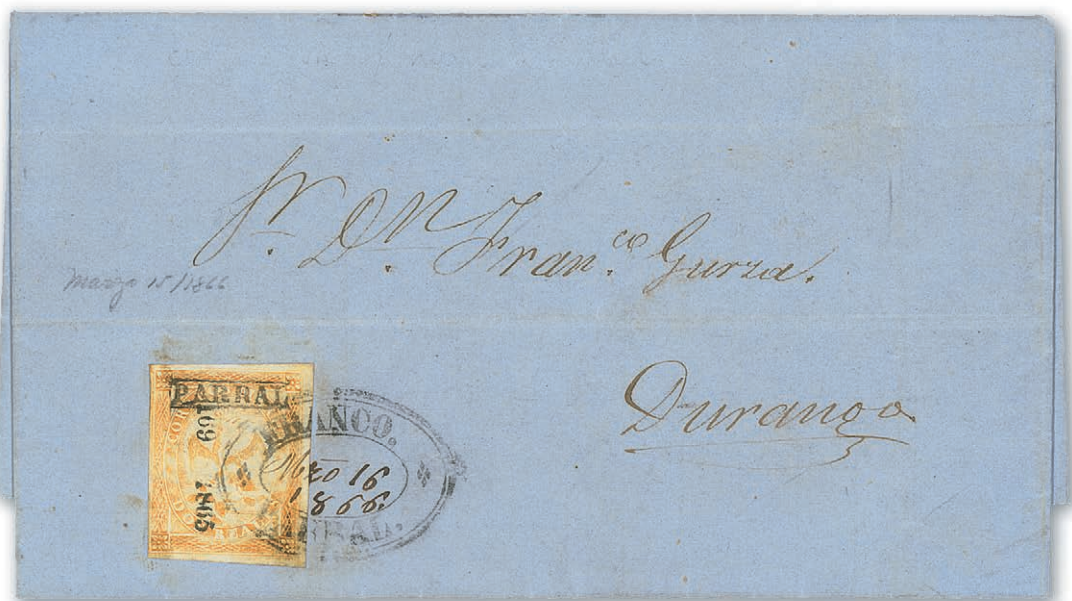 Sr. Dn. Fran.co Gurza.
Marzo 15/1866
Durango
PARRAL
169 1865
COR
REAL
FRANCO.
Mzo 16
1866.
PARRAL.